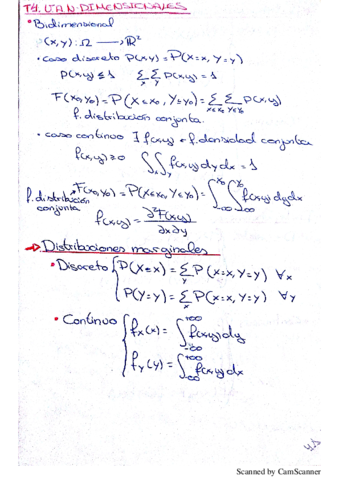 T4. V.A N-DIMENSIONALES
• Bidimensional
(x,y): Ω → ℝ²
• caso discreto P(x,y) = P(X=x, Y=y)
P(x,y) ≤ 1 Σx Σy P(x,y) = 1
F(x₀,y₀) = P(X≤x₀, Y≤y₀) = Σx≤x₀ Σy≤y₀ P(x,y)
f. distribución conjunta.
• caso continuo ∃ f(x,y) = f. densidad conjunta
f(x,y) ≥ 0 ∫x ∫y f(x,y) dy dx = 1
f. distribución conjunta → F(x₀,y₀) = P(X≤x₀, Y≤y₀) = ∫-∞^x₀ ∫-∞^y₀ f(x,y) dy dx
f(x,y) = ∂²F(x,y) / ∂x∂y
→ Distribuciones marginales
• Discreto { P(X=x) = Σy P(X=x, Y=y) ∀x
P(Y=y) = Σx P(X=x, Y=y) ∀y
• Continuo { fx(x) = ∫-∞^+∞ f(x,y) dy
fy(y) = ∫-∞^+∞ f(x,y) dx
Scanned by CamScanner